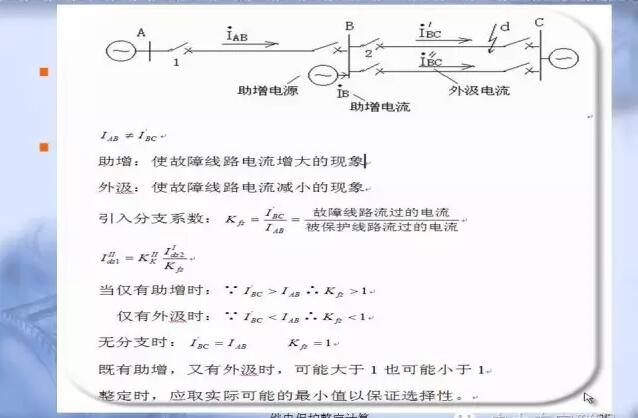 A İAB B İ'BC d C
1 2 İ''BC
助增电源 İB 外汲电流
助增电流
I_AB ≠ I_BC
助增：使故障线路电流增大的现象
外汲：使故障线路电流减小的现象
引入分支系数：K_fz = I_BC / I_AB = 故障线路流过的电流 / 被保护线路流过的电流
I^II_dz1 = K^II_K I^I_dz2 / K_fz
当仅有助增时：∵ I_BC > I_AB ∴ K_fz > 1
仅有外汲时：∵ I_BC < I_AB ∴ K_fz < 1
无分支时：I_BC = I_AB K_fz = 1
既有助增，又有外汲时，可能大于 1 也可能小于 1
整定时，应取实际可能的最小值以保证选择性。